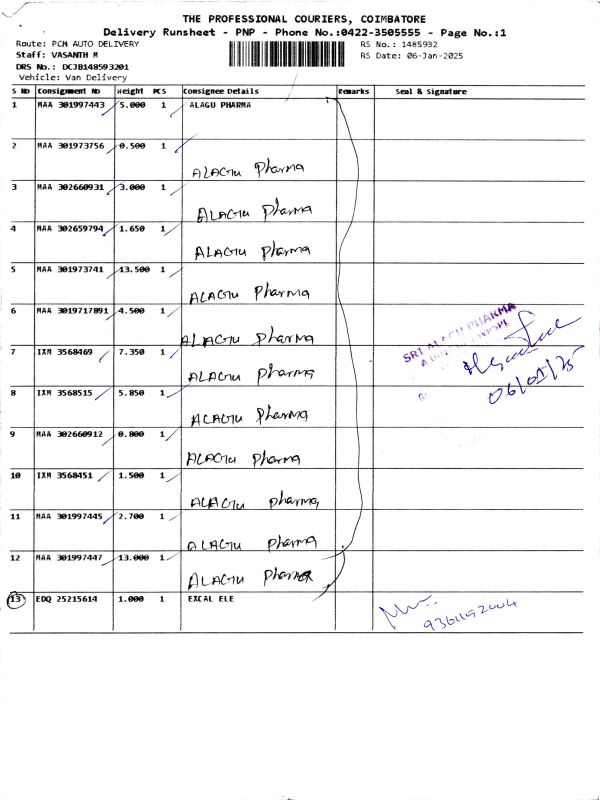 THE PROFESSIONAL COURIERS, COIMBATORE
Delivery Runsheet - PNP - Phone No.:0422-3505555 - Page No.:1
Route: PCM AUTO DELIVERY RS No.: 1485932
Staff: VASANTH M RS Date: 06-Jan-2025
DRS No.: DCJB148593201
Vehicle: Van Delivery
S No Consignment No Weight PCS Consignee Details Remarks Seal & Signature
1 MAA 301997443 5.000 1 ALAGU PHARMA
2 MAA 301973756 0.500 1
ALAGU Pharma
3 MAA 302660931 3.000 1
ALAGU Pharma
4 MAA 302659794 1.650 1
ALAGU Pharma
5 MAA 301973741 13.500 1
ALAGU Pharma
6 MAA 3019717891 4.500 1
ALAGU Pharma
SRI ALAGU PHARMA
7 IXM 3568469 7.350 1
ALAGU Pharma
06/01/25
8 IXM 3568515 5.850 1
ALAGU Pharma
9 MAA 302660912 0.800 1
ALAGU Pharma
10 IXM 3568451 1.500 1
ALAGU Pharma
11 MAA 301997445 2.700 1
ALAGU Pharma
12 MAA 301997447 13.000 1
ALAGU Pharma
13 EDQ 25215614 1.000 1 EXCAL ELE